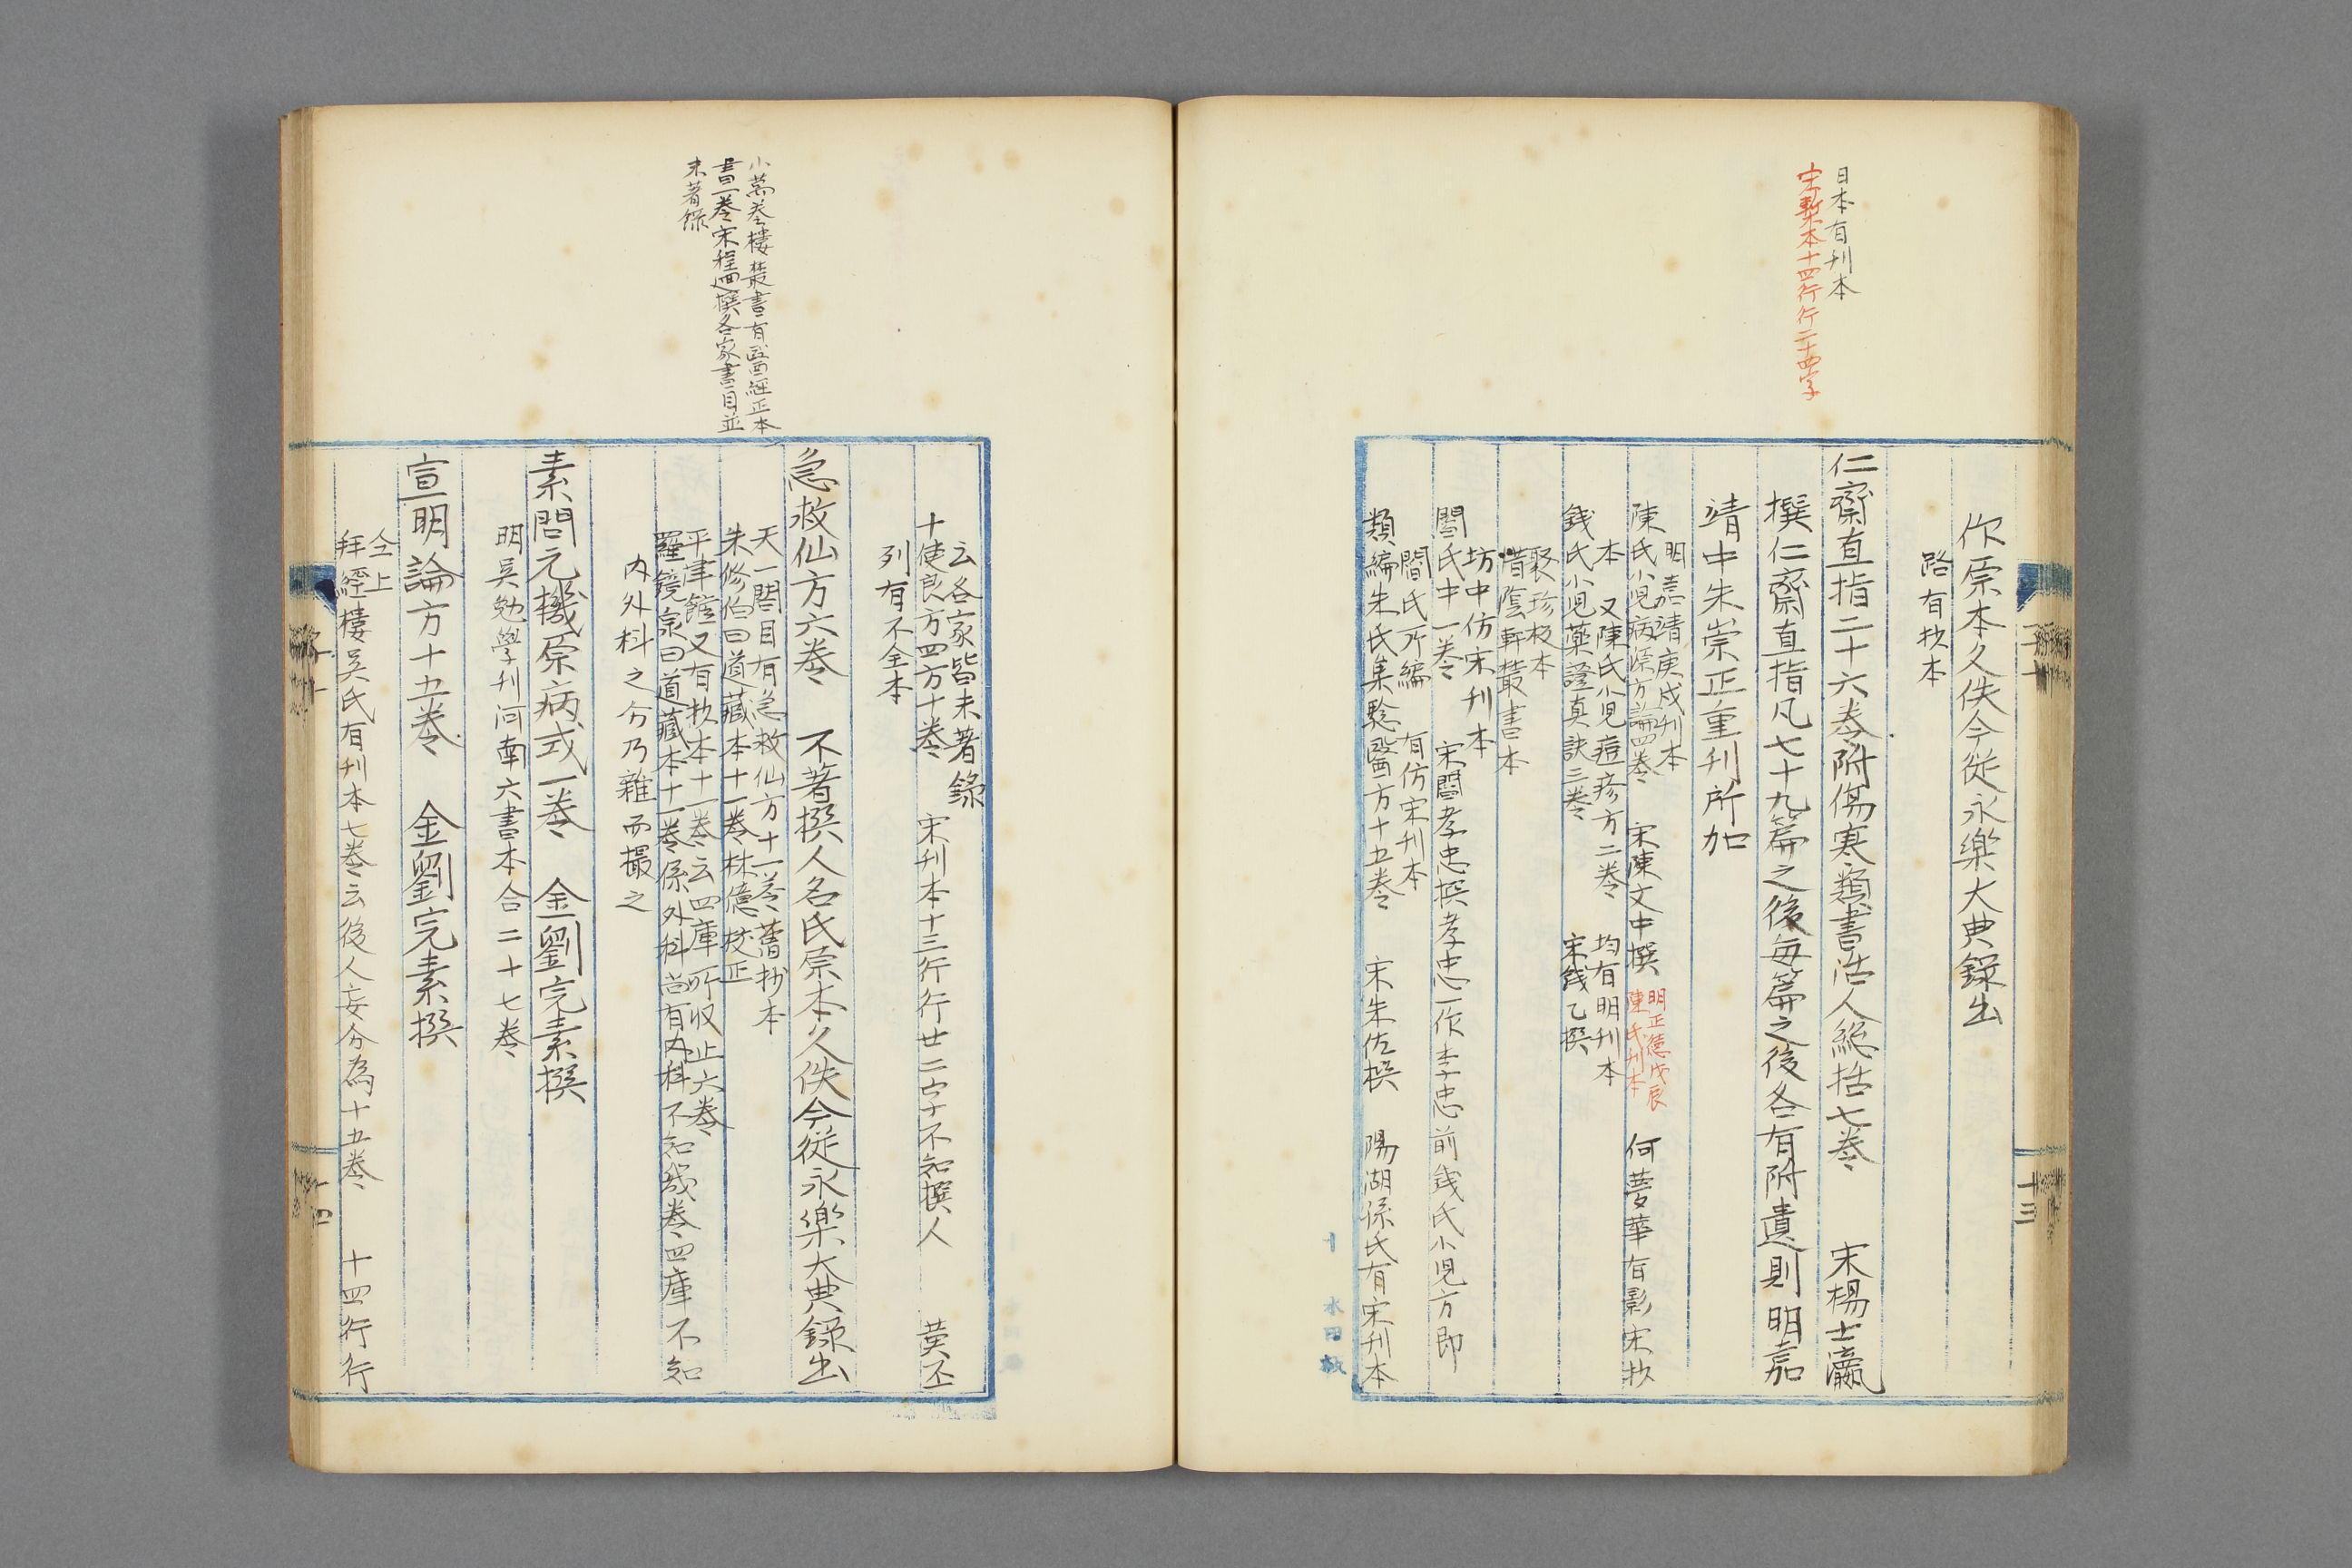 日本有刊本
宋槧本十四行行二十四字
作原本久佚今從永樂大典錄出
路有抄本
仁齋直指二十六卷附傷寒類書活人總括七卷　宋楊士瀛
撰仁齋直指凡七十九篇之後每篇之後各有附遺則明嘉
靖中朱崇正重刊所加
明嘉靖庚戌刊本
陳氏小児病源方論四卷　宋陳文中撰
明正德戊辰
陳氏刊本
何夢華有影宋抄
本　又陳氏小児痘疹方二卷　均有明刊本
錢氏小児藥證真訣三卷　宋錢乙撰
聚珍板本
惜陰軒叢書本
坊中仿宋刊本
閻氏中一卷　宋閻孝忠撰孝忠一作李忠前錢氏小児方即
閻氏所編　有仿宋刊本
類編朱氏集騐醫方十五卷　宋朱佐撰　陽湖係氏有宋刊本
十三
小萬卷樓叢書有醫經正本
書一卷宋程迥撰各家書目並
未著錄
云各家皆未著錄
十使良方四方十卷　宋刊本十三行行廿二字不知撰人　黄丕
列有不全本
急救仙方六卷　不著撰人名氏原本久佚今從永樂大典錄出
天一閣目有急救仙方十一卷舊抄本
朱修伯曰道藏本十一卷林億校正
平津館又有抄本十一卷云四庫所収止六卷
羅鏡泉曰道藏本十一卷係外科尚有内科不知幾卷四庫不知
内外科之分乃雜而撮之
素問元機原病式一卷　金劉完素撰
明吴勉學刊河南六書本合二十七卷
宣明論方十五卷　金劉完素撰
仝上
拜經樓吴氏有刊本七卷云後人妄分為十五卷　十四行行